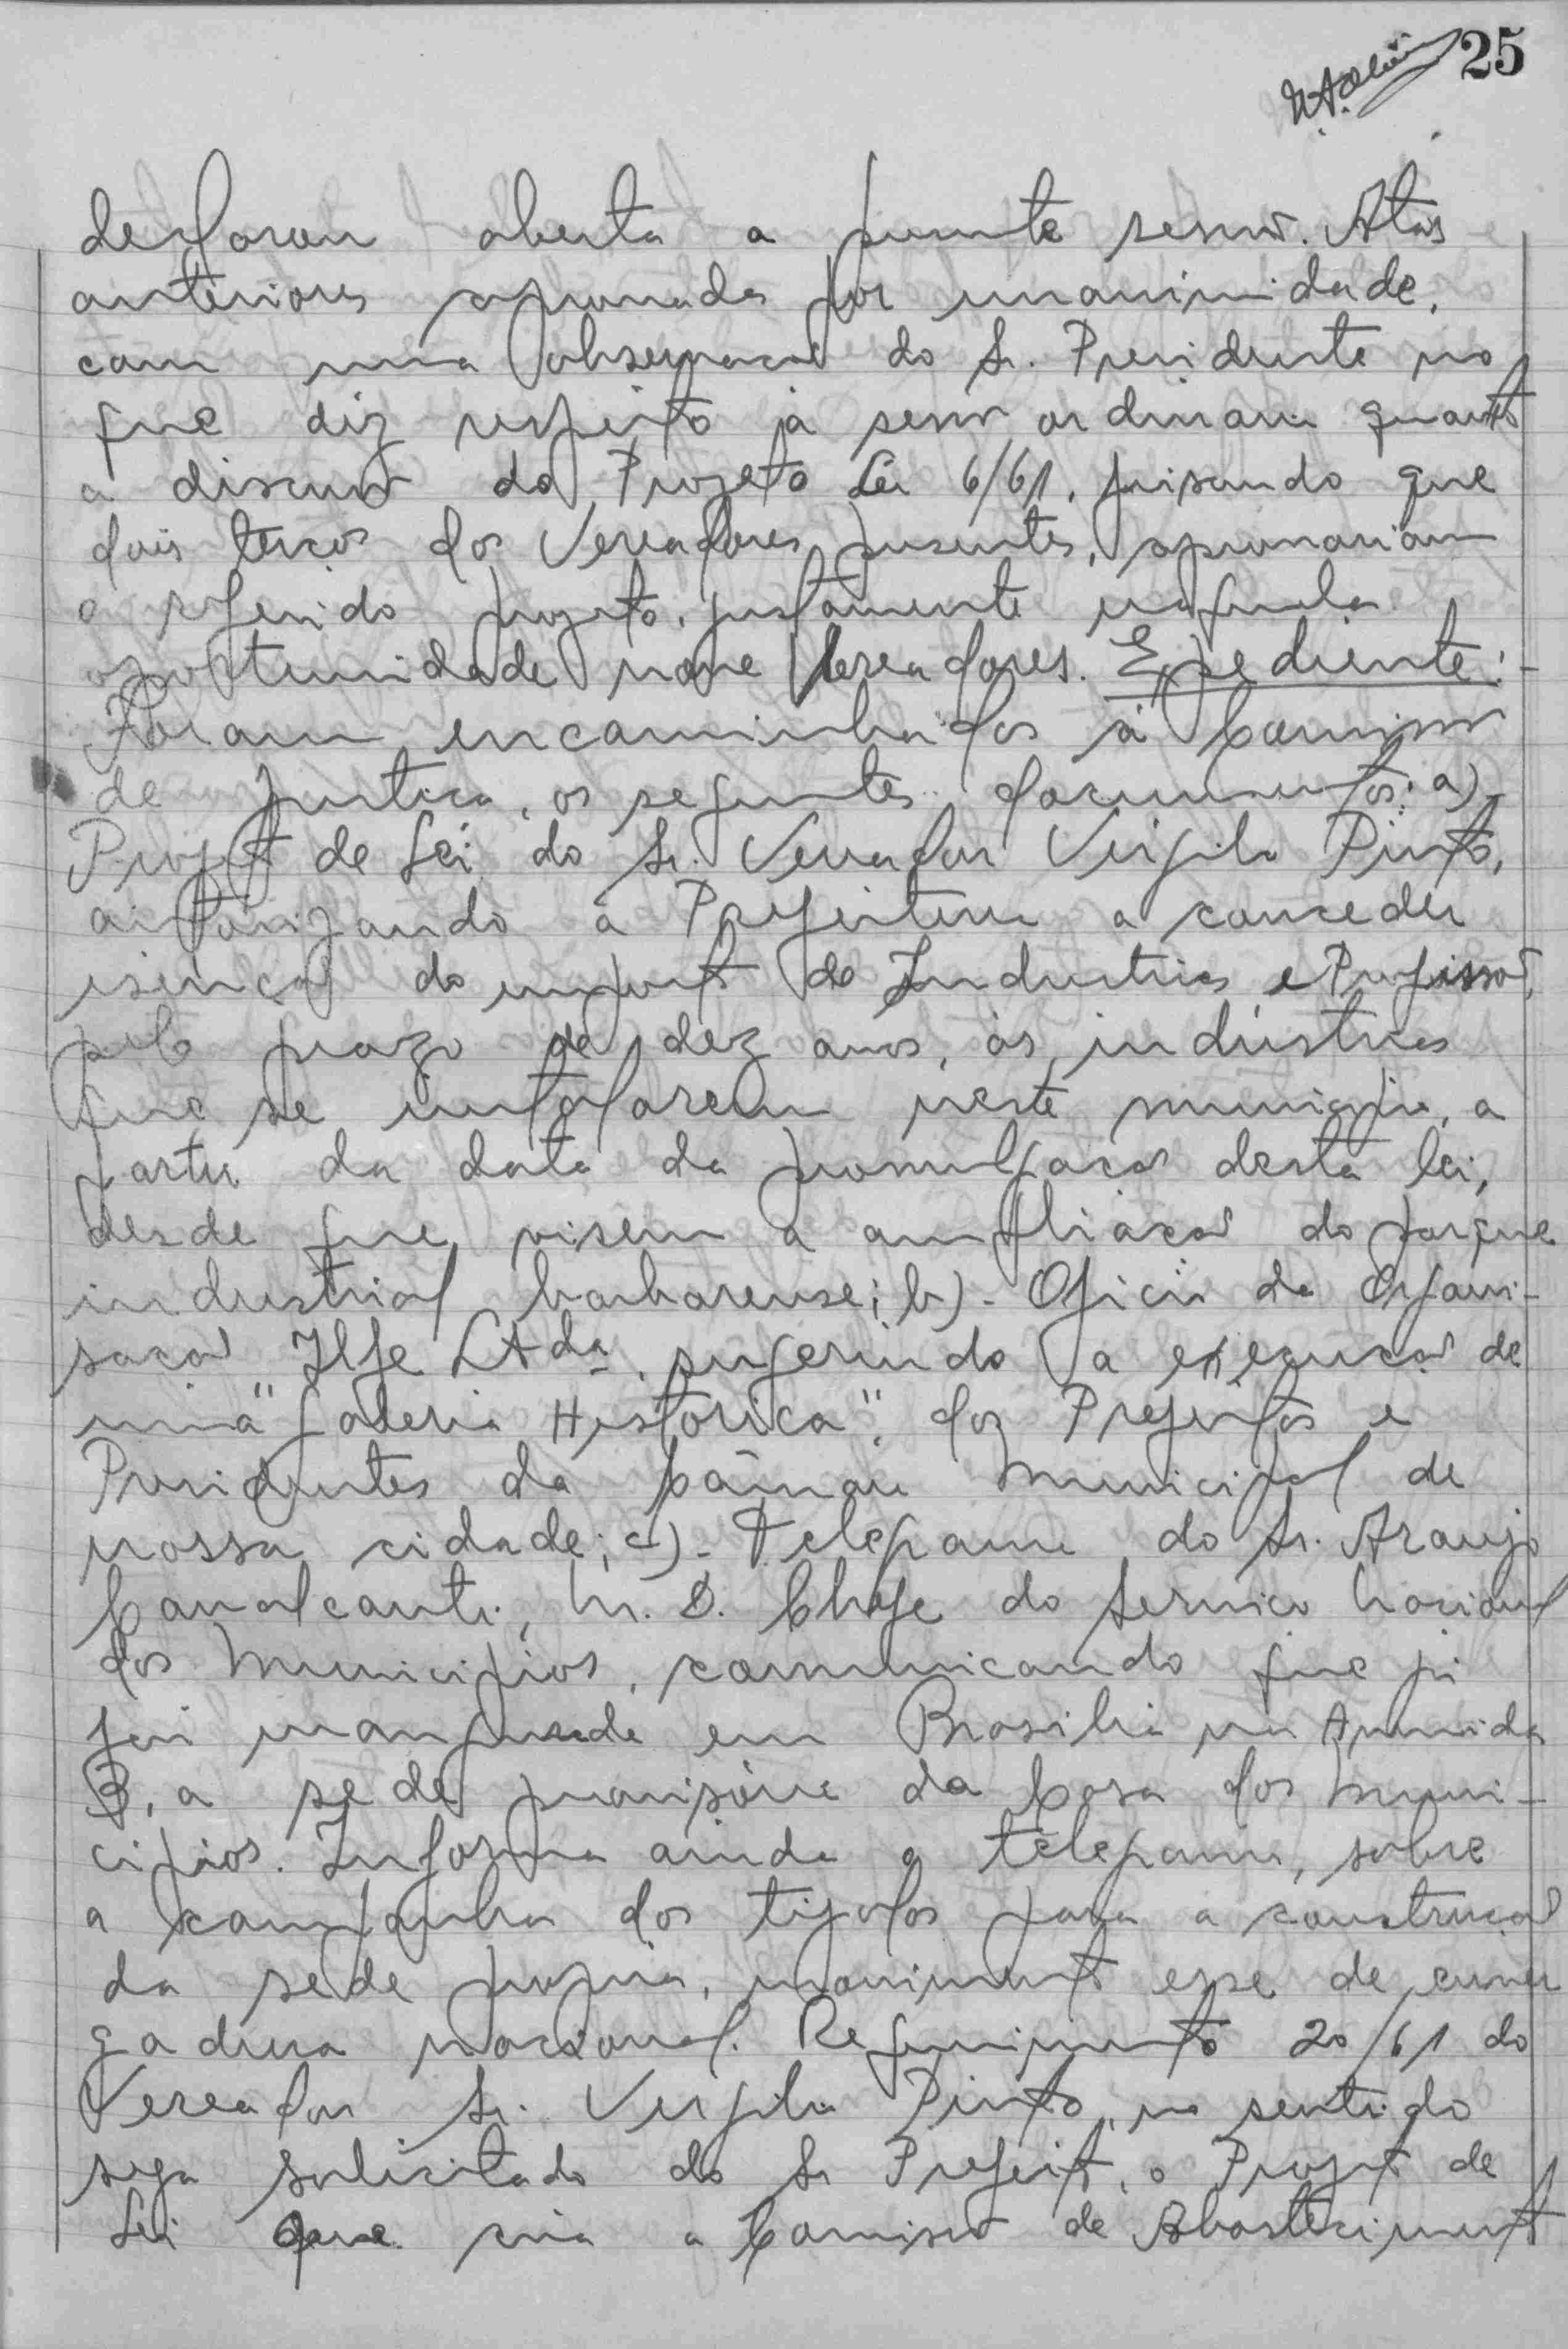 25
declarou aberta a presente sessão. Atas
anteriores aprovadas por unanimidade,
com uma observação do Sr. Presidente no
que diz respeito à sessão ordinaria quanto
a discussão do Projeto Lei 6/61, frisando que
dois terços dos Vereadores presentes, aprovariam
o referido projeto, justamente naquela
oportunidade nove Vereadores. Expediente:-
Foram encaminhados à Comissão
de Justiça, os seguintes documentos: a)
Projeto de Lei do Sr. Vereador Virgilio Pinto,
autorizando a Prefeitura a conceder
isenção do imposto de Industrias e Profissão,
pelo prazo de dez anos, às indústrias
que se instalarem neste municipio, a
partir da data da promulgação desta lei,
desde que visem a ampliação do parque
industrial barbarense; b)- Oficio da Organi-
sação Ilfe Ltda, sugerindo a execução de
uma "Galeria Historica", dos Prefeitos e
Presidentes da Câmara Municipal de
nossa cidade; c)- Telegrama do Sr. Araujo
Cavalcanti, M. D. Chefe do Serviço Nacional
dos Municipios, comunicando que já
foi inaugurada em Brasilia na Avenida
B, a sede provisória da Casa dos Muni-
cipios. Informa ainda o telegrama, sobre
a campanha dos tijolos para a construção
da sede propria, movimento esse de enver
gadura nacional. Requerimento 20/61 do
Vereador Sr. Virgilio Pinto, no sentido
seja solicitado do Sr Prefeito, o Projeto de
Lei que cria a Comissão de Abastecimento